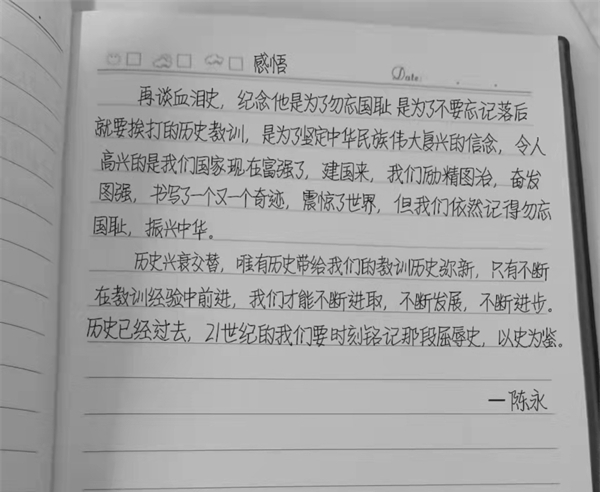 感悟
Date:
再谈血泪史，纪念他是为了勿忘国耻是为了不要忘记落后
就要挨打的历史教训，是为了坚定中华民族伟大复兴的信念，令人
高兴的是我们国家现在富强了，建国来，我们励精图治，奋发
图强，书写了一个又一个奇迹，震惊了世界，但我们依然记得勿忘
国耻，振兴中华。
历史兴衰交替，唯有历史带给我们的教训历史弥新，只有不断
在教训经验中前进，我们才能不断进取，不断发展，不断进步。
历史已经过去，21世纪的我们要时刻铭记那段屈辱史，以史为鉴。
一陈永